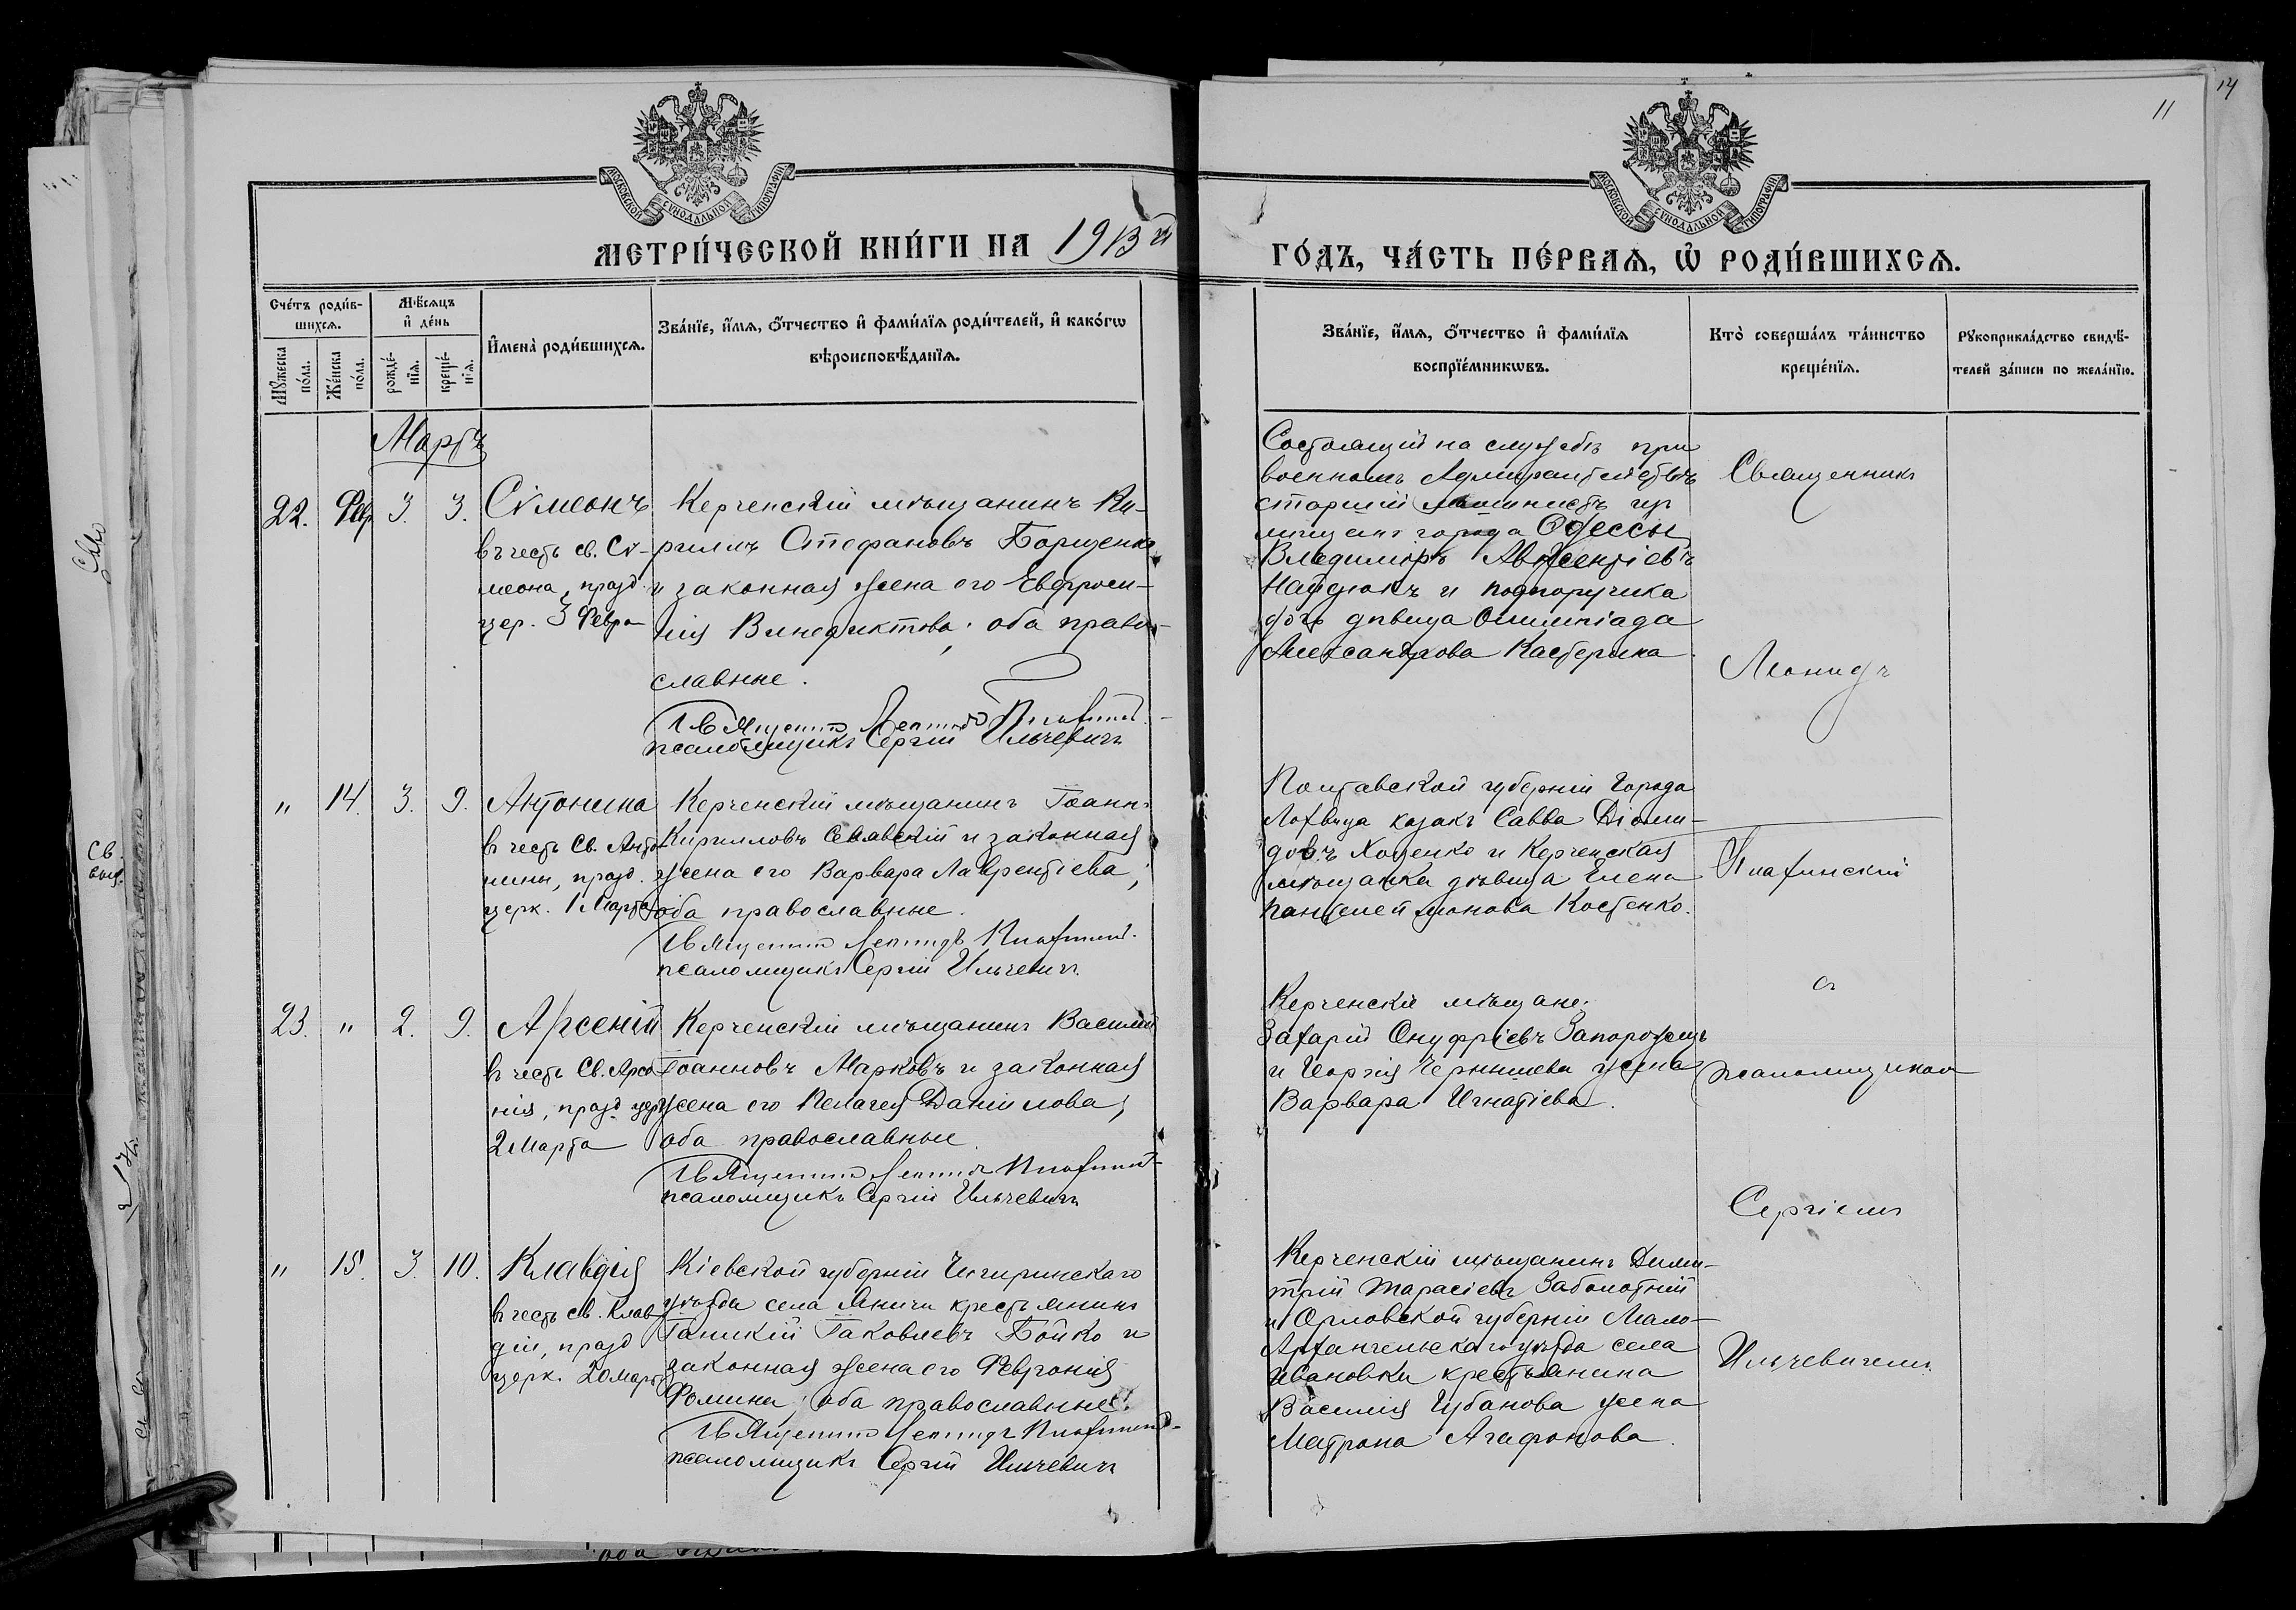 11
14
МОСКОВСКОЙ СѴНОДАЛЬНОЙ ТИПОГРАФІИ
МОСКОВСКОЙ СѴНОДАЛЬНОЙ ТИПОГРАФІИ
МЕТРИ́ЧЕСКОЙ КНИ́ГИ НА 1913 й
ГО́ДЪ, ЧА́СТЬ ПЕ́РВАѦ, Ѽ РОДИ́ВШИХСѦ.
Сче́тъ роди́в-
шихсѧ.
Мꙋ́жеска по́ла.
Же́нска по́ла.
Мѣ́сѧцъ
и҆ де́нь
рожде́-
нїѧ.
креще́-
нїѧ.
И҆мена̀ роди́вшихсѧ.
Зва́нїе, и҆́мѧ, ѻ҆́тчество и҆ фами́лїѧ роди́телей, и҆ како́гѡ
вѣроисповѣ́данїѧ.
Зва́нїе, и҆́мѧ, ѻ҆́тчество и҆ фами́лїѧ
воспрїе́мникѡвъ.
Кто̀ соверша́лъ та́инство
креще́нїѧ.
Рꙋкоприкла́дство свидѣ́-
телей за́писи по жела́нїю.
Мартъ
22. Фвр 3. 3.
Сѵмеонъ
въ честь св. Сѵ-
меона, празд.
цер. 3 Февра
Керченскій мѣщанинъ Ки-
риллъ Стефановъ Борщенко
и законная жена его Евфроси-
нія Венедиктова; оба право-
славные.
Священникъ Леонидъ
псаломщикъ Сергій Ильчевичъ
Состоящій на службѣ при
военномъ Адмиралтействѣ
старшій машинистъ
города Одессы
Владиміръ Авксентіевъ
Найдюкъ и подпоручика
дочь дѣвица Олимпіада
Александрова Кастерина
Священникъ
Леонидъ
" 14. 3. 9.
Антонина
въ честь Св. Анто-
нины, празд.
церк. 1 Марта
Керченскій мѣщанинъ Іоаннъ
Кирилловъ и законная
жена его Варвара Лаврентіева;
оба православные.
Священникъ Леонидъ
псаломщикъ Сергій Ильчевичъ.
Полтавской губерніи города
Лохвица козакъ Савва Діоми-
довъ Хоменко и Керченская
мѣщанка дѣвица Елена
Пантелеймонова Костенко.
23. " 2. 9.
Арсеній
въ честь Св. Арсе
нія, празд церк
2 Марта
Керченскій мѣщанинъ Василій
Іоанновъ Марковъ и законная
жена его Пелагея Даніилова;
оба православные.
Священникъ Леонидъ
псаломщикъ Сергій Ильчевичъ
Керченскіе мѣщане:
Захарій Онуфріевъ Запорожецъ
и Георгія Чернышева жена
Варвара Игнатіева.
съ
псаломщикомъ
Сергіемъ
" 15. 3. 10.
Клавдія
въ честь св. Клав
діи, празд
церк. 20 Марта
Кіевской губерніи Чигиринскаго
уѣзда села Яничи крестьянинъ
Іаковлевъ Бойко и
законная жена его Февронія
Фомина; оба православные.
Священникъ Леонидъ
псаломщикъ Сергій Ильчевичъ
Керченскій мѣщанинъ Дими-
трій Тарасіевъ Заболотній
и Орловской губерніи Мало-
Архангельскаго уѣзда села
Ивановки крестьянина
Василія Губанова жена
Матрона Агафонова.
Ильчевичемъ.